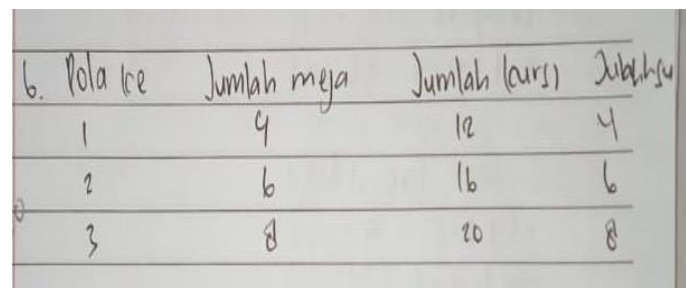 6. Pola ke Jumlah meja Jumlah kursi
1 4 12 4
2 6 16 6
3 8 20 8